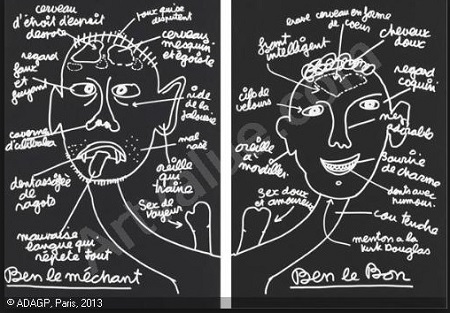 cerveau
d'étroit d'esprit
poux qui se
disputent
cerveau
mesquin
et égoïste
regard
faux
et
fuyant
ride
de la
jalousie
caverne
d'alibaba
mal
rasé
oreille
qui
traine
dent assoifée
de
ragots
sexe de
voyeur
mauvaise
langue qui
répète tout
Ben le méchant
cerveau en forme
de coeur
front
intelligent
cheveux
doux
regard
coquin
cils de
velours
nez
adorable
oreille
a
mordiller
Sourire
de charme
dent avec
humour
Sex doux
et amoureux
cou tendre
menton a la
Kirk Douglas
Ben le Bon
© ADAGP, Paris, 2013
Artvalue.com